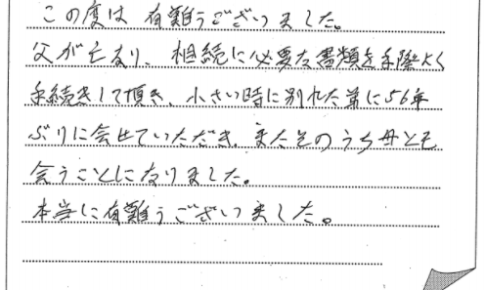 この度は 有難うございました。
父が亡なり、相続に必要な書類を手際よく
手続きして頂き、小さい時に別れた弟に56年
ぶりに会せていただき、またそのうち母とも
会うことになりました。
本当に有難うございました。